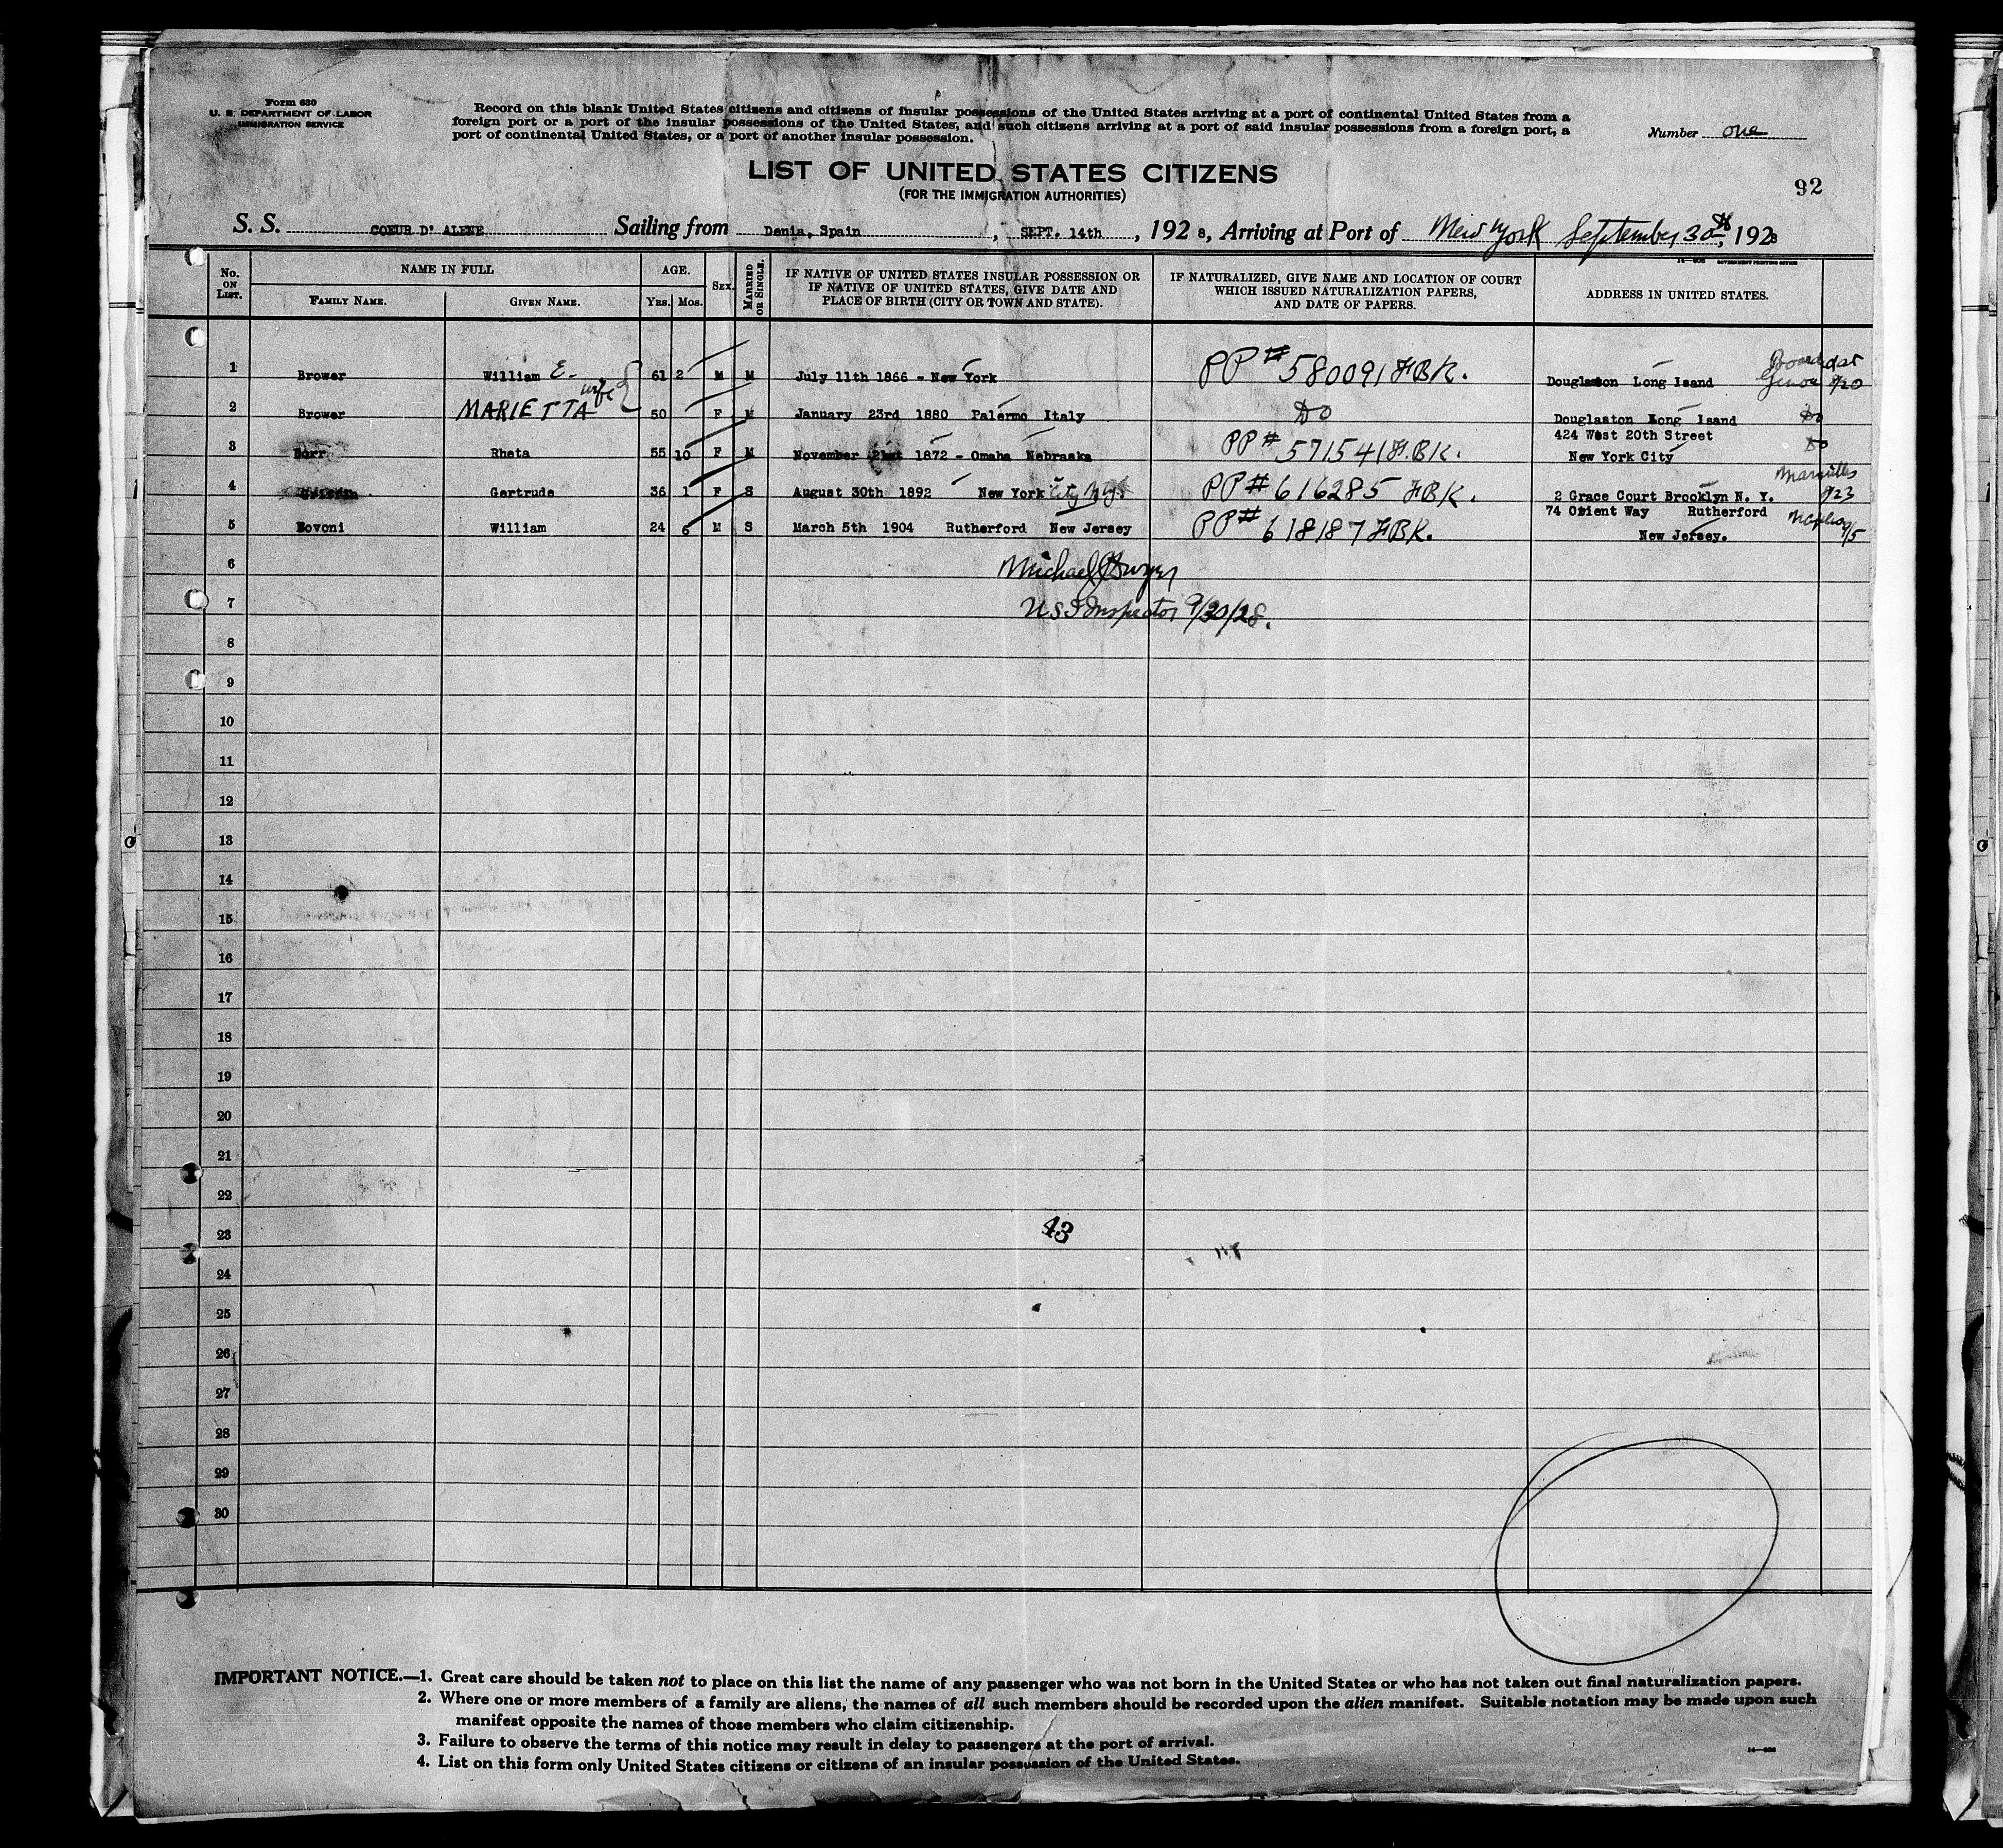 Form 630
U. S. DEPARTMENT OF LABOR
IMMIGRATION SERVICE
Record on this blank United States citizens and citizens of insular possessions of the United States arriving at a port of continental United States from a
foreign port or a port of the insular possessions of the United States, and such citizens arriving at a port of said insular possessions from a foreign port, a
port of continental United States, or a port of another insular possession.
Number one
LIST OF UNITED STATES CITIZENS
(FOR THE IMMIGRATION AUTHORITIES)
92
S. S. COEUR D' ALENE Sailing from Denia, Spain, SEPT. 14th, 1928, Arriving at Port of New York September 30th, 1928
No. ON LIST. NAME IN FULL FAMILY NAME. GIVEN NAME. AGE. YRS. MOS. SEX. MARRIED OR SINGLE.
IF NATIVE OF UNITED STATES INSULAR POSSESSION OR
IF NATIVE OF UNITED STATES, GIVE DATE AND
PLACE OF BIRTH (CITY OR TOWN AND STATE).
IF NATURALIZED, GIVE NAME AND LOCATION OF COURT
WHICH ISSUED NATURALIZATION PAPERS,
AND DATE OF PAPERS.
ADDRESS IN UNITED STATES.
1 Brower William E. 61 2 M M July 11th 1866 - New York PP # 580091 FBK. Douglaston Long Isand Boarded at Genoa 9/20
2 Brower MARIETTA wife 50 F M January 23rd 1880 Palermo Italy DO Douglaston Long Isand Do
3 Dorr Rheta 55 10 F M November 21st 1872 - Omaha Nebraska PP # 571541 F.BK. 424 West 20th Street New York City Do
4 Gertrude 36 1 F S August 30th 1892 New York City N.Y. PP # 616285 FBK. 2 Grace Court Brooklyn N. Y. Marseilles 9/23
5 Bovoni William 24 6 M S March 5th 1904 Rutherford New Jersey PP # 618187 FBK. 74 Orient Way Rutherford New Jersey. Naples 9/15
6
Michael
7
U S I Inspector 9/30/28.
8
9
10
11
12
13
14
15
16
17
18
19
20
21
22
23
43
24
25
26
27
28
29
30
IMPORTANT NOTICE.—1. Great care should be taken not to place on this list the name of any passenger who was not born in the United States or who has not taken out final naturalization papers.
2. Where one or more members of a family are aliens, the names of all such members should be recorded upon the alien manifest. Suitable notation may be made upon such
manifest opposite the names of those members who claim citizenship.
3. Failure to observe the terms of this notice may result in delay to passengers at the port of arrival.
4. List on this form only United States citizens or citizens of an insular possession of the United States.